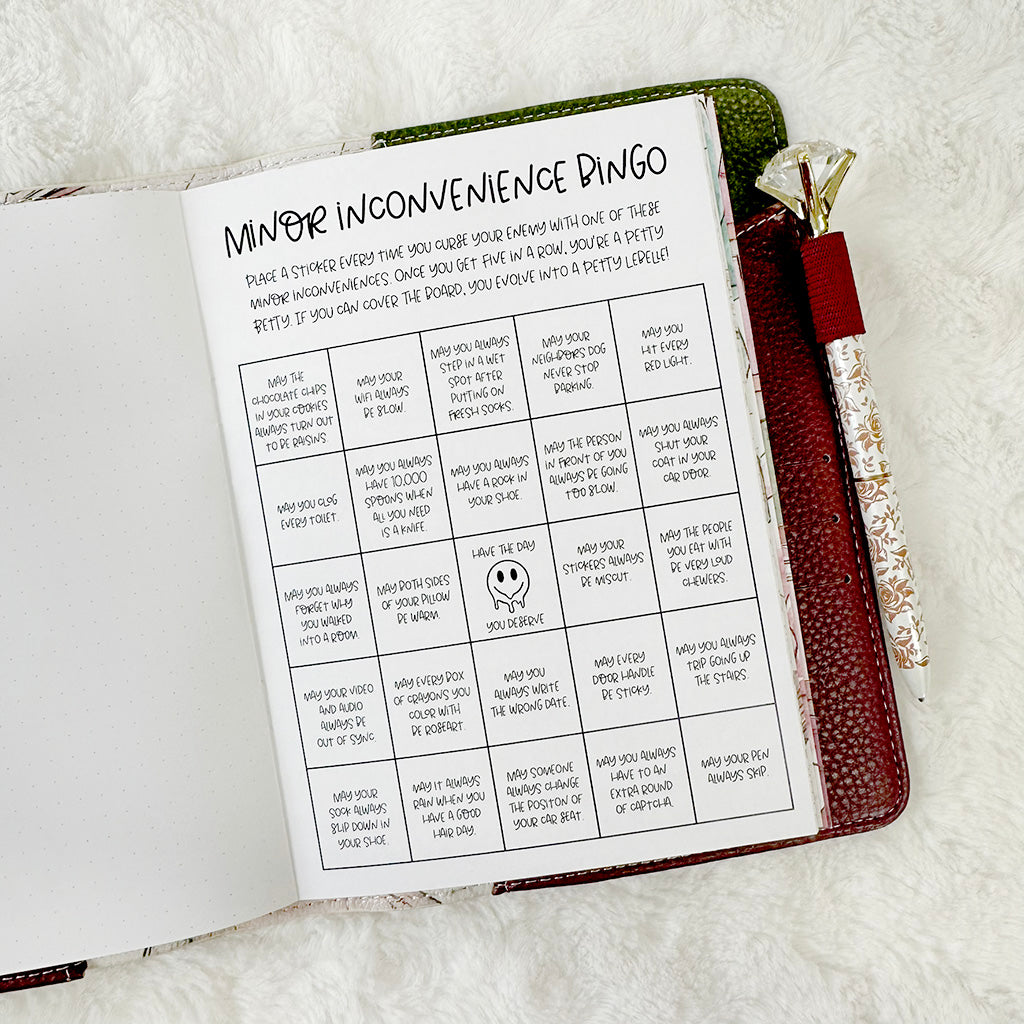 MINOR INCONVENIENCE BINGO
PLACE A STICKER EVERY TIME YOU CURSE YOUR ENEMY WITH ONE OF THESE
MINOR INCONVENIENCES. ONCE YOU GET FIVE IN A ROW, YOU'RE A PETTY
BETTY. IF YOU CAN COVER THE BOARD, YOU EVOLVE INTO A PETTY LEBELLE!
MAY THE
CHOCOLATE CHIPS
IN YOUR COOKIES
ALWAYS TURN OUT
TO BE RAISINS.
MAY YOUR
WIFI ALWAYS
BE SLOW.
MAY YOU ALWAYS
STEP IN A WET
SPOT AFTER
PUTTING ON
FRESH SOCKS.
MAY YOUR
NEIGHBORS DOG
NEVER STOP
BARKING.
MAY YOU
HIT EVERY
RED LIGHT.
MAY YOU CLOG
EVERY TOILET.
MAY YOU ALWAYS
HAVE 10,000
SPOONS WHEN
ALL YOU NEED
IS A KNIFE.
MAY YOU ALWAYS
HAVE A ROCK IN
YOUR SHOE.
MAY THE PERSON
IN FRONT OF YOU
ALWAYS BE GOING
TOO SLOW.
MAY YOU ALWAYS
SHUT YOUR
COAT IN YOUR
CAR DOOR.
MAY YOU ALWAYS
FORGET WHY
YOU WALKED
INTO A ROOM.
MAY BOTH SIDES
OF YOUR PILLOW
BE WARM.
HAVE THE DAY
YOU DESERVE
MAY YOUR
STICKERS ALWAYS
BE MISCUT.
MAY THE PEOPLE
YOU EAT WITH
BE VERY LOUD
CHEWERS.
MAY YOUR VIDEO
AND AUDIO
ALWAYS BE
OUT OF SYNC.
MAY EVERY BOX
OF CRAYONS YOU
COLOR WITH
BE ROSEART.
MAY YOU
ALWAYS WRITE
THE WRONG DATE.
MAY EVERY
DOOR HANDLE
BE STICKY.
MAY YOU ALWAYS
TRIP GOING UP
THE STAIRS.
MAY YOUR
SOCK ALWAYS
SLIP DOWN IN
YOUR SHOE.
MAY IT ALWAYS
RAIN WHEN YOU
HAVE A GOOD
HAIR DAY.
MAY SOMEONE
ALWAYS CHANGE
THE POSITON OF
YOUR CAR SEAT.
MAY YOU ALWAYS
HAVE TO AN
EXTRA ROUND
OF CAPTCHA.
MAY YOUR PEN
ALWAYS SKIP.